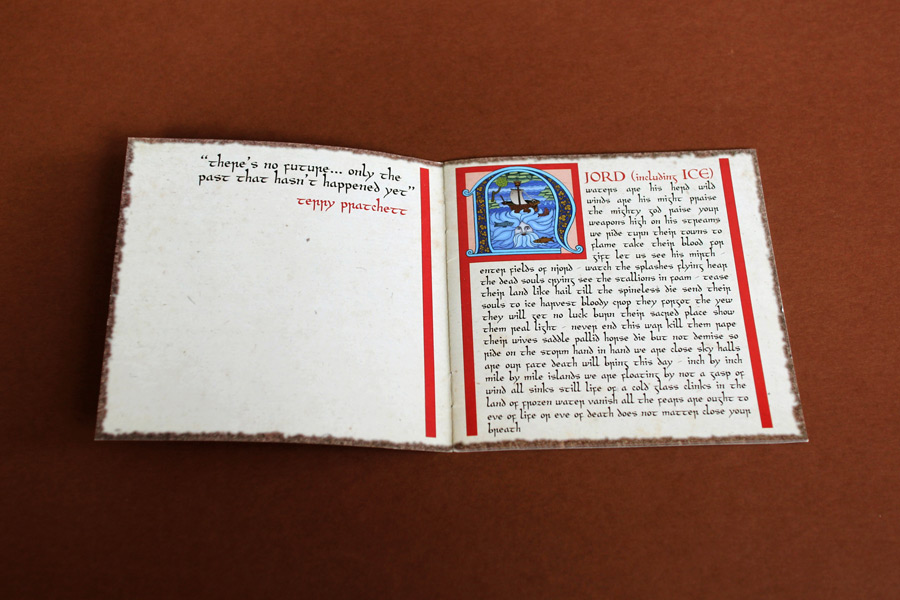 “there's no future... only the
past that hasn't happened yet”
terry pratchett
NJORD (including ICE)
waters are his herd wild
winds are his might praise
the mighty god raise your
weapons high on his streams
we ride turn their towns to
flame take their blood for
gift let us see his mirth
enter fields of njord - watch the splashes flying hear
the dead souls crying see the stallions in foam - tease
their land like hail till the spineless die send their
souls to ice harvest bloody crop they forgot the yew
they will get no luck burn their sacred place show
them real light - never end this war kill them rape
their wives saddle pallid horse die but not demise so
ride on the storm hand in hand we are close sky halls
are our fate death will bring this day - inch by inch
mile by mile islands we are floating by not a gasp of
wind all sinks still life of a cold glass clinks in the
land of frozen water vanish all the fears are ought to
eve of life or eve of death does not matter close your
breath